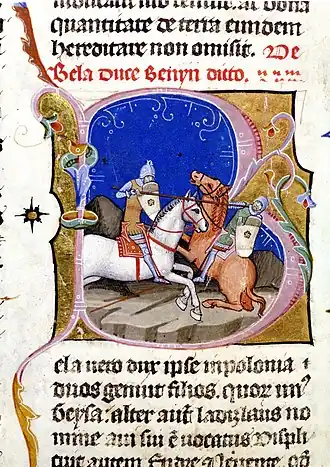 quantitate de terra eimdem
hereditare non omisit. De
Bela Duce Benyn dicto.
ela vero dux ipse in polonia
duos genuit filios. quor un9
Geysa. alter aut ladizlaus no
mine aui sui e vocatus. Displi